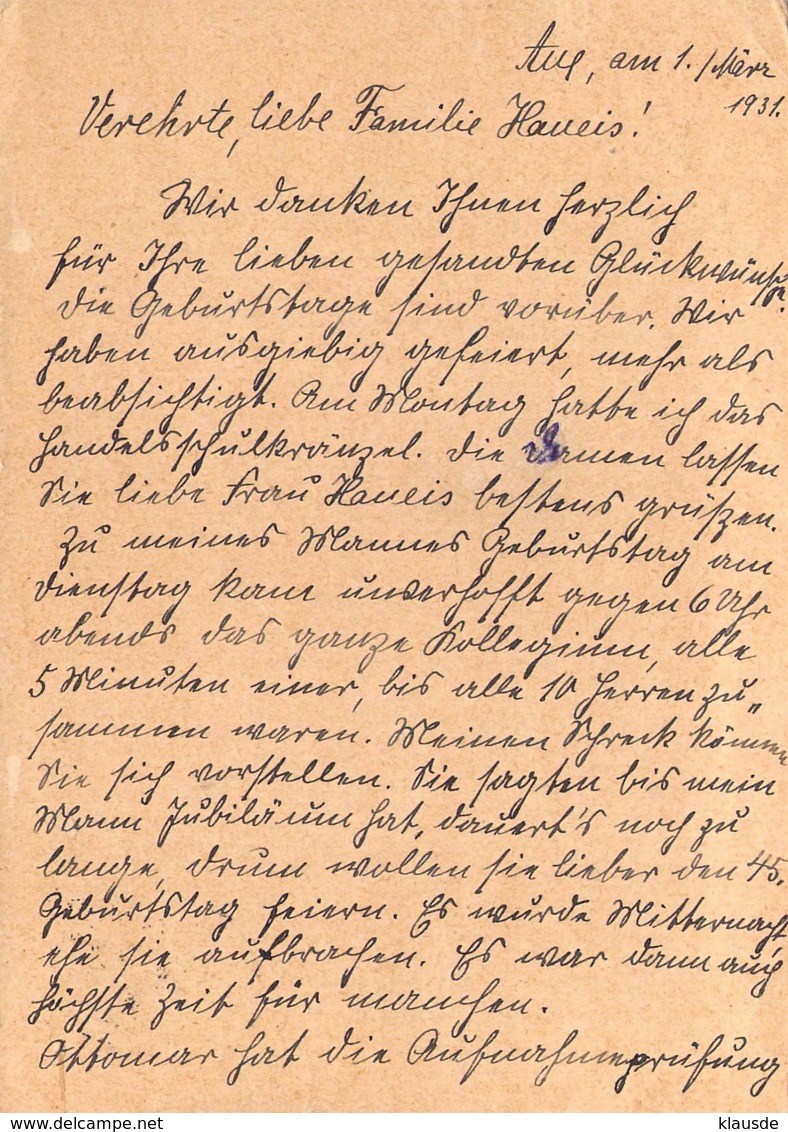 Aue, am 1. März
1931.
Verehrte, liebe Familie Haueis!
Wir danken Ihnen herzlich
für Ihre lieben gesandten Glückwünsche.
Die Geburtstage sind vorüber. Wir
haben ausgiebig gefeiert, mehr als
beabsichtigt. Am Montag hatte ich das
Handelsschulkränzel. Die Damen lassen
Sie liebe Frau Haueis bestens grüßen.
Zu meines Mannes Geburtstag am
Dienstag kam unverhofft gegen 6 Uhr
abends das ganze Kollegium, alle
5 Minuten einer, bis alle 10 Herren zu„
sammen waren. Meinen Schreck können
Sie sich vorstellen. Sie sagten bis mein
Mann Jubiläum hat, dauert's noch zu
lange, drum wollen sie lieber den 45.
Geburtstag feiern. Es wurde Mitternacht
ehe sie aufbrachen. Es war dann auch
höchste Zeit für manchen.
Ottomar hat die Aufnahmeprüfung
www.delcampe.net
klausde